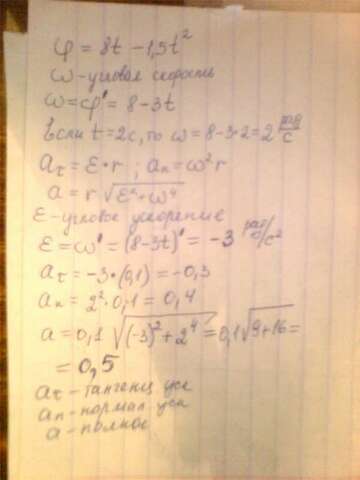 φ = 8t - 1,5t²
ω - угловая скорость
ω = φ' = 8 - 3t
Если t = 2c, то ω = 8 - 3·2 = 2 рад/с
aτ = ε·r ; an = ω²r
a = r √(ε² + ω⁴)
ε - угловое ускорение
ε = ω' = (8 - 3t)' = -3 рад/с²
aτ = -3·(0,1) = -0,3
an = 2²·0,1 = 0,4
a = 0,1 √((-3)² + 2⁴) = 0,1 √(9+16) =
= 0,5
aτ - тангенц уск
an - нормал уск
a - полное